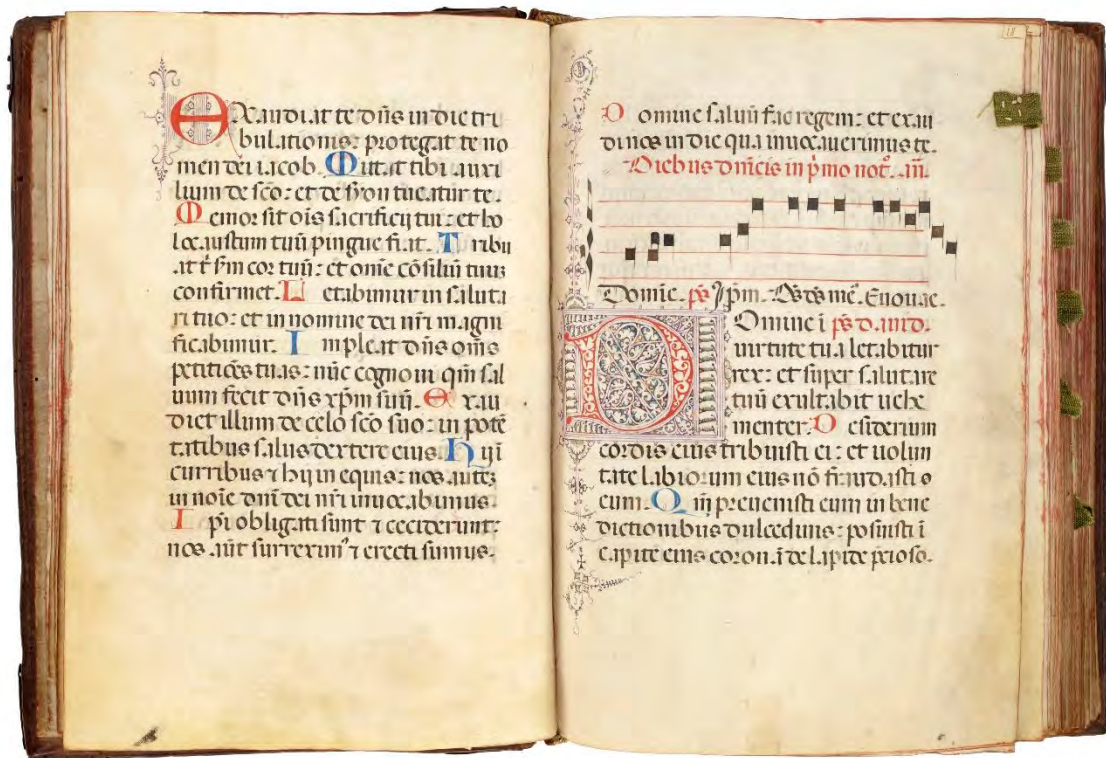 Exaudiat te dñs in die tri
bulationis: protegat te no
men dei iacob. Mittat tibi auxi
lium de sc̃o: et de syon tueatur te.
Memor sit oĩs sacrificij tui: et ho
locaustum tuũ pingue fiat. Tribu
at t̃ sm̃ cor tuũ: et om̃e cõsiliũ tuuz
confirmet. Letabimur in saluta
ri tuo: et in nomine dei nr̃i magni
ficabimur. Impleat dñs om̃s
petitiões tuas: nũc cognoui qm̃ sal
uum fecit dñs xp̃m suũ. Exau
diet illum de celo sc̃o suo: in potẽ
tatibus salus dextere eius. Hij ĩ
curribus ⁊ hij in equis: nos autez
in noĩe dñi dei nr̃i inuocabimus.
Ipi obligati sunt ⁊ ceciderunt:
nos aũt surreximꝰ ⁊ erecti sumus.
Domine saluũ fac regem: et exau
di nos in die qua inuocauerimus te.
Diebus dñicis in p̃mo noct̃. añ.
Domĩe. ps̃ Euouae.
Domine ĩ ps̃ dauid.
uirtute tua letabitur
rex: et super salutare
tuũ exultabit uehe
menter. Desiderium
cordis eius tribuisti ei: et uolun
tate labiorum eius nõ fraudasti
eum. Qm̃ preuenisti eum in bene
dictionibus dulcedinis: posuisti ĩ
capite eius coronã de lapide p̃cioso.
18